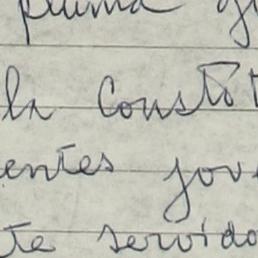 pluma g
la Constit
entes jov
te servido